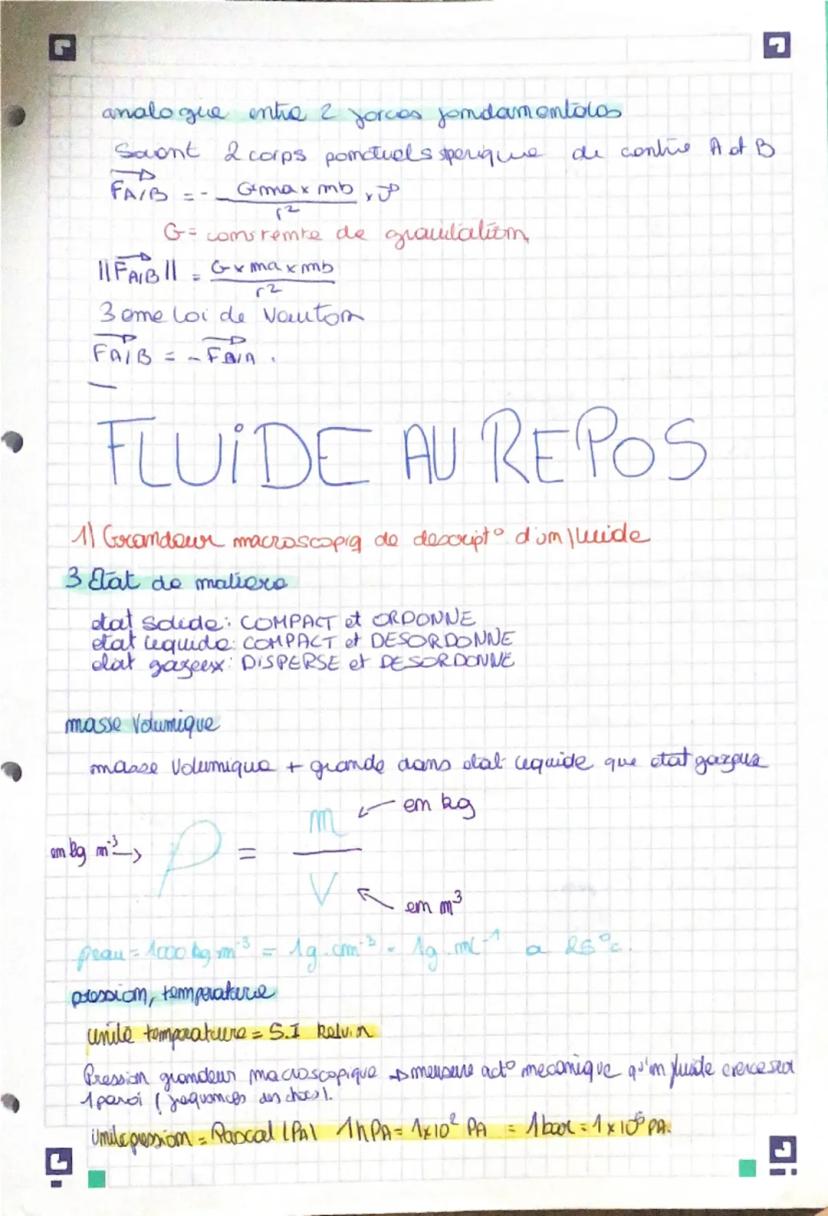 analogue entre 2 forces fondamentales
Soient 2 corps ponctuels sperique de centre A et B
FA/B = - G×ma×mb / r² × U
G = constente de gravitation
||FA/B|| = G×ma×mb / r²
3eme loi de Nauton
FA/B = - FB/A.
FLUiDE AU REPOS
1) Grandeur macroscopiq de descript° d'un fluide
3 Etat de matiere
etat solide: COMPACT et ORDONNE
etat liquide: COMPACT et DESORDONNE
etat gazeux: DiSPERSE et DESORDONNE
masse volumique
masse volumique + grande dans etat liquide que etat gazeux
m ← en kg
en kg m⁻³ → ρ = —
V ← en m³
ρeau = 1000 kg.m⁻³ = 1g.cm⁻³ = 1g.mL⁻¹ a 25°c.
pression, temperature
unité temperature = S.I Kelvin
Pression grandeur macroscopique → mesure act° mecanique qu'un fluide exerce sur
1 paroi (frequences des chocs).
Unite pression = Pascal (PA) 1hPA = 1×10² PA = 1 bar = 1×10⁵ PA.